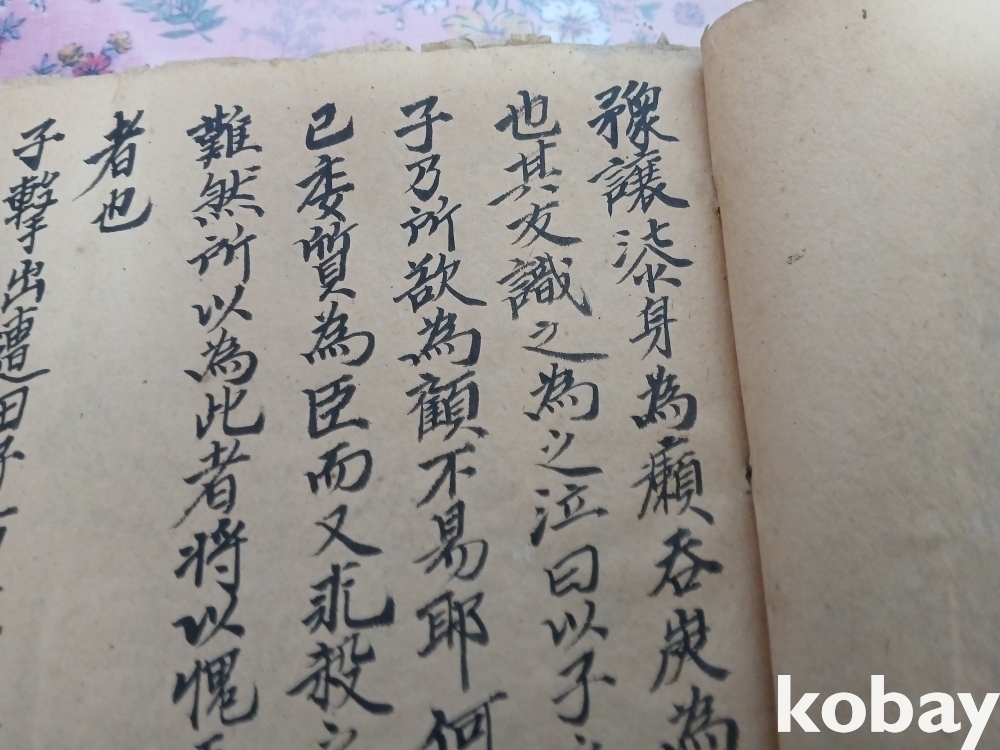 豫讓漆身為癩吞炭為
也其友識之為之泣曰以子之
子乃所欲為顧不易耶何
已委質為臣而又求殺之
難然所以為此者將以愧天
者也
子擊出遭田子方
kobay